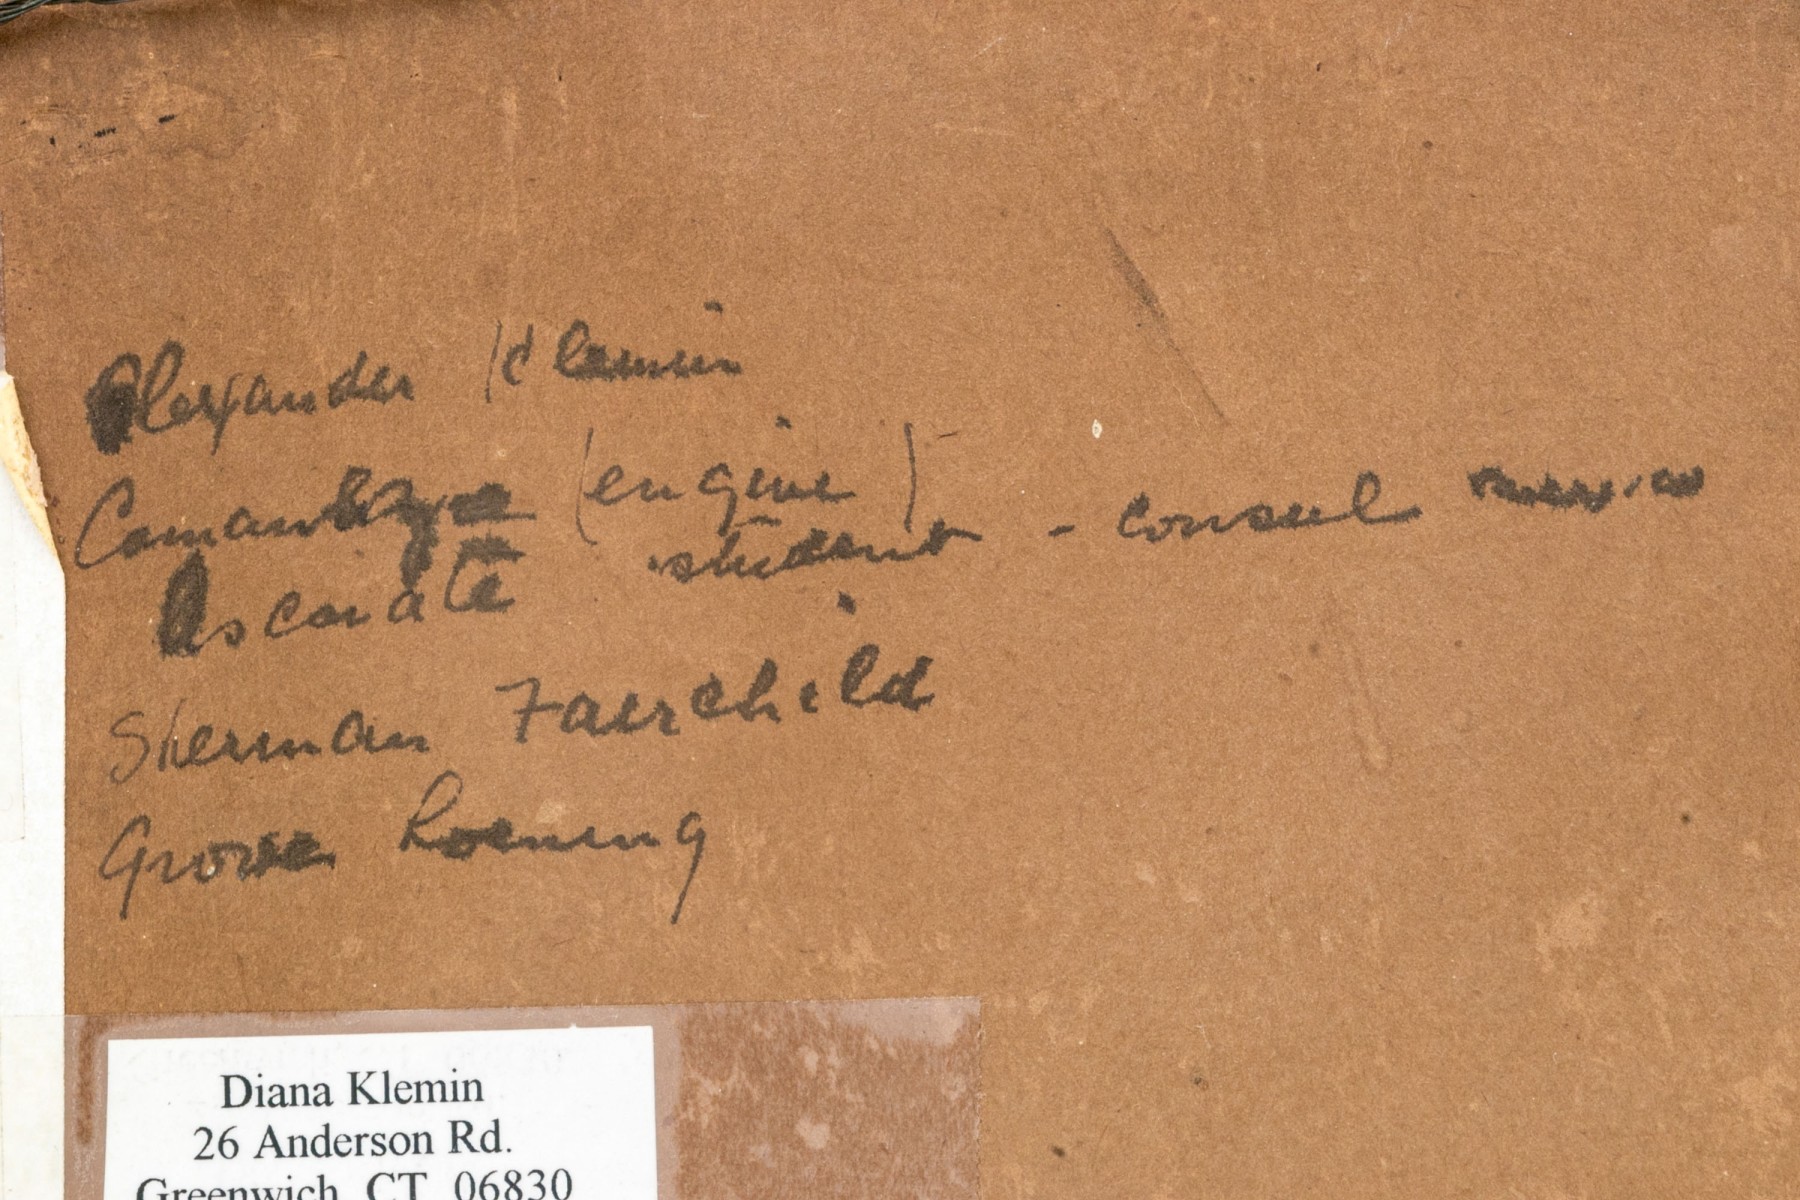 Alexander Klemin
(engine)
student - consul Mexico
Sherman Fairchild
Grover Loening
Diana Klemin
26 Anderson Rd.
Greenwich, CT 06830